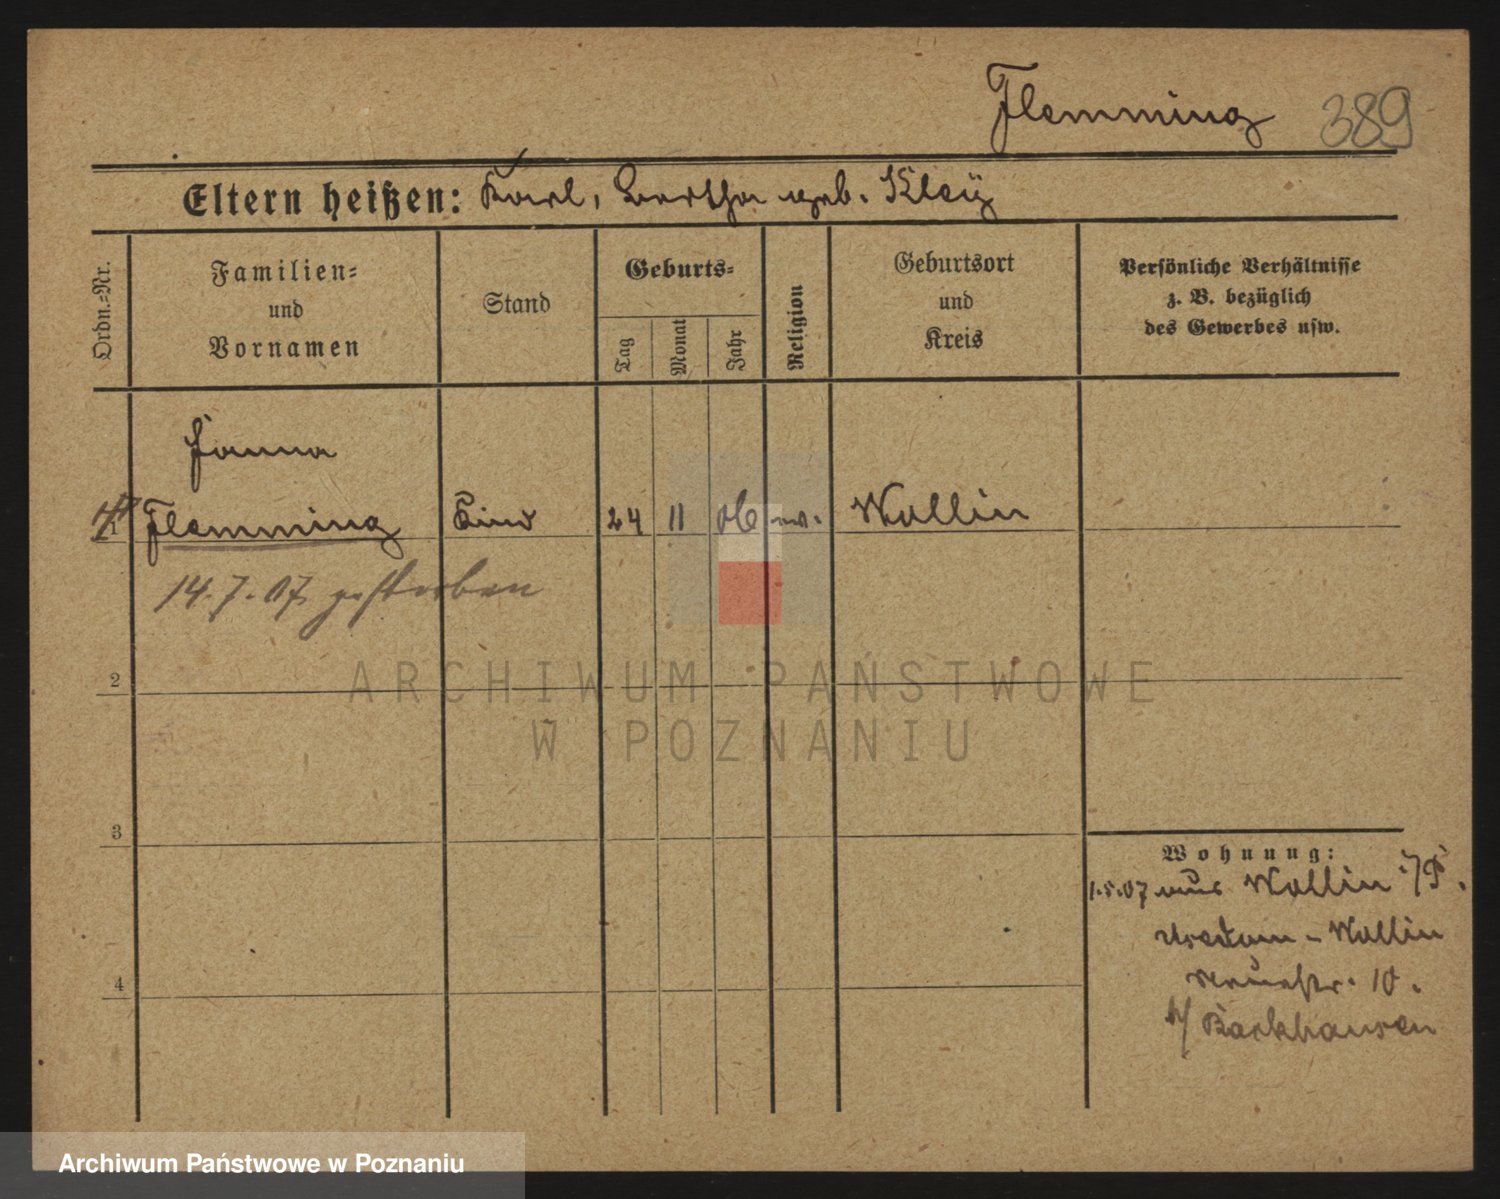 Flemming 389
Eltern heißen: Karl, Bertha geb. Kley
Ordn.-Nr.
Familien-
und
Vornamen
Stand
Geburts-
Tag
Monat
Jahr
Religion
Geburtsort
und
Kreis
Persönliche Verhältnisse
z. B. bezüglich
des Gewerbes usw.
1
Flemming Kind 24 11 06 ev. Wollin
14.7.07 gestorben
2
ARCHIWUM PAŃSTWOWE
W POZNANIU
3
4
Wohnung:
1.5.07 aus Wollin i/P.
Usedom-Wollin
10.
b/ Barkhausen
Archiwum Państwowe w Poznaniu